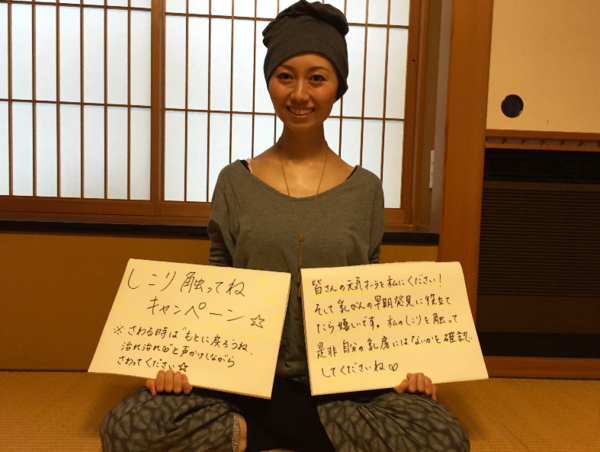 しこり触ってね
キャンペーン☆
※さわる時は"もとに戻ろうね、
治れ治れ"と声かけしながら
さわってください☆
皆さんの元気オーラを私にください!
そして乳がんの早期発見に役立て
たら嬉しいです。私のしこりを触って
是非自分の乳房にはないかを確認
してくださいね♡